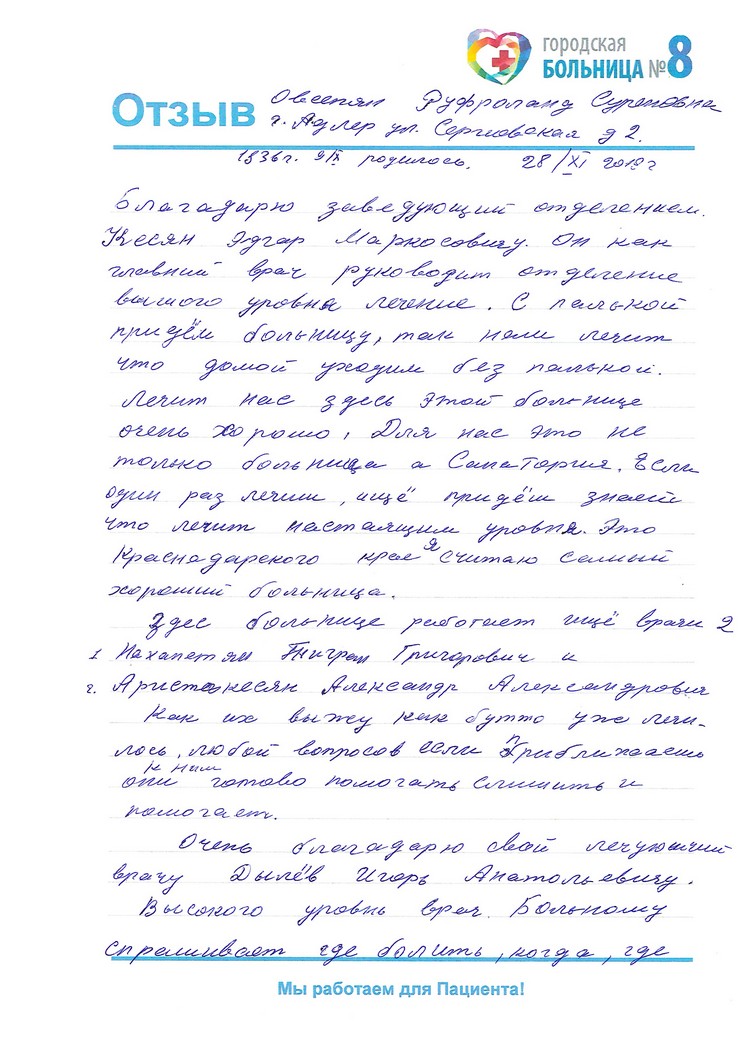 городская
БОЛЬНИЦА №8
Отзыв Овсепян Суреновна
г. Адлер ул. д 2.
1936г. 9/IX родилось. 28/XI 2018г
Благадарю заведующий отделением.
Кесян Эдгар Маркосовичу. Он как
главний врач руководит отделение
вышого уровня лечение. С палькой
придём больницу, так нали лечит
что домой уходим без палькой.
Лечит нас здесь этой больнице
очень хорошо, Для нас это не
только больница а Санатория. Если
один раз лечиш, ищё придёш знаеш
что лечит настаящим уровня. Это
Краснадарского края я считаю самый
хороший больница.
Здес больнице работает ищё врачи 2
1. Нахапетян Тигран Григорович и
2. Аристакесян Александр Александрович
Как их выжу как бутто уже лечи-
лось, любой вопросов если приближаешь
к ним
они готово помогать слишить и
помогает.
Очень благадарю свой лечующий
врачу Дылёв Игорь Анатольевичу.
Высокого уровнь врач. Больному
спрашивает где болить, когда, где
Мы работаем для Пациента!